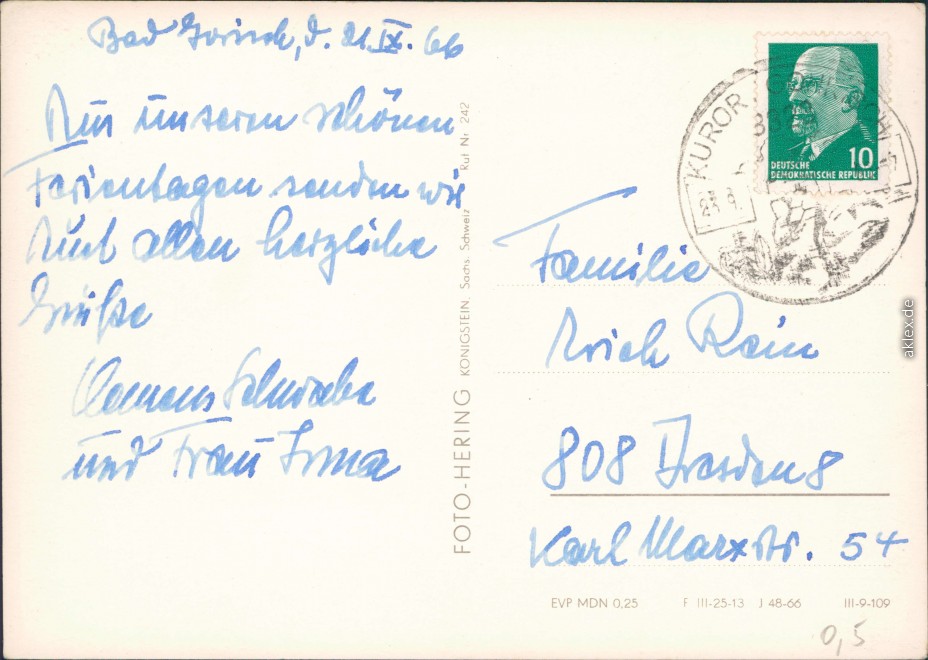 Bad Gorisch, d. 21.IX. 66
Aus unseren schönen
Ferientagen senden wir
Euch allen herzliche
Grüße
Clemens Schwabe
und Frau Irma
FOTO-HERING KÖNIGSTEIN, Sächs. Schweiz Ruf Nr. 242
KUROR
DEUTSCHE
DEMOKRATISCHE REPUBLIK
10
Familie
Erich Rein
808 Dresden 8
Karl Marxstr. 54
EVP MDN 0,25 F III-25-13 J 48-66 III-9-109
0,5
aklex.de